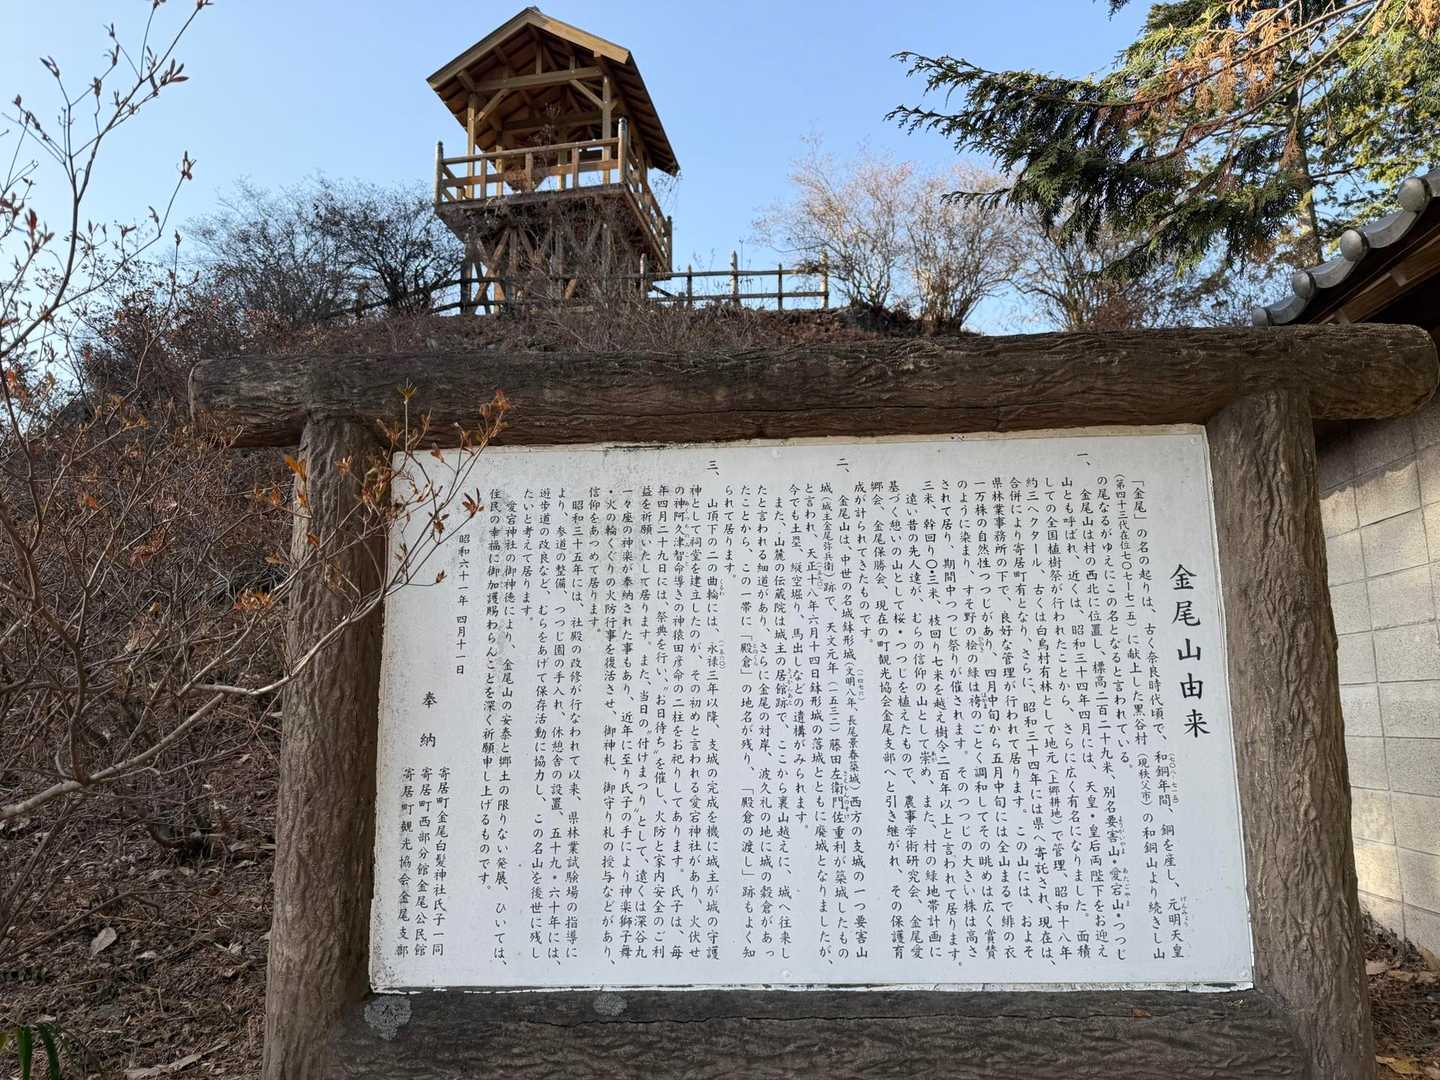 金尾山由来
一、
「金尾」の名の起りは、古く奈良時代頃で、和銅年間、銅を産し、元明天皇
(第四十三代在位七〇七ー七一五)に献上した黒谷村(現秩父市)の和銅山より続きし山
の尾なるがゆえにこの名となると言われている。
金尾山は村の西北に位置し、標高二百二十九米、別名要害山・愛宕山・つつじ
山とも呼ばれ、近くは、昭和三十四年四月には、天皇・皇后両陛下をお迎え
しての全国植樹祭が行われたことから、さらに広く有名になりました。面積
約三ヘクタール、古くは白鳥村有林として地元(上郷耕地)で管理、昭和十八年
合併により寄居町有となり、さらに、昭和三十四年には県へ寄託され、現在は、
県林業事務所の下で、良好な管理が行われて居ります。この山には、およそ
一万株の自然性つつじがあり、四月中旬から五月中旬には全山まるで緋の衣
のように染まり、すそ野の桧の緑は袴のごとく調和してその眺めは広く賞賛
されて居り、期間中つつじ祭りが催されます。そのつつじの大きい株は高さ
三米、幹回り〇・三米、枝回り七米を越え樹令二百年以上と言われて居ります。
遠い昔の先人達が、むらの信仰の山として崇め、また、村の緑地帯計画に
基づく憩いの山として桜・つつじを植えたもので、農事学術研究会、金尾愛
郷会、金尾保勝会、現在の町観光協会金尾支部へと引き継がれ、その保護育
成が計られてきたものです。
二、
金尾山は、中世の名城鉢形城(文明八年、長尾景春築城)西方の支城の一つ要害山
城(城主金尾弥兵衛)跡で、天文元年(一五三二)藤田左衛門佐重利が築城したもの
と言われ、天正十八年六月十四日鉢形城の落城とともに廃城となりましたが、
今でも土塁、縦空堀り、馬出しなどの遺構がみられます。
また、山麓の伝蔵院は城主の居館跡で、ここから裏山越えに、城へ往来し
たと言われる細道があり、さらに金尾の対岸、波久礼の地に城の穀倉があっ
たことから、この一帯に「殿倉」の地名が残り、「殿倉の渡し」跡もよく知
られて居ります。
三、
山頂下の二の曲輪には、永禄三年以降、支城の完成を機に城主が城の守護
神として祠堂を建立したのが、その初めと言われる愛宕神社があり、火伏せ
の神阿久津智命導きの神猿田彦命の二柱をお祀りしてあります。氏子は、毎
年四月二十九日には、祭典を行い、〝お日待ち〟を催し、火防と家内安全のご利
益を祈願いたして居ります。また、当日の〝付けまつり〟として、遠くは深谷丸
一々座の神楽が奉納された事もあり、近年に至り氏子の手により神楽獅子舞
・火の輪くぐりの火防行事を復活させ、御神札、御守り札の授与などがあり、
信仰をあつめて居ります。
昭和三十五年には、社殿の改修が行なわれて以来、県林業試験場の指導に
より、参道の整備、つつじ園の手入れ、休憩舎の設置、五十九・六十年には、
遊歩道の改良など、むらをあげて保存活動に協力し、この名山を後世に残し
たいと考えて居ります。
愛宕神社の御神徳により、金尾山の安泰と郷土の限りない発展、ひいては、
住民の幸福に御加護賜わらんことを深く祈願申し上げるものです。
昭和六十一年 四月十一日
奉 納
寄居町金尾白髪神社氏子一同
寄居町西部分館金尾公民館
寄居町観光協会金尾支部